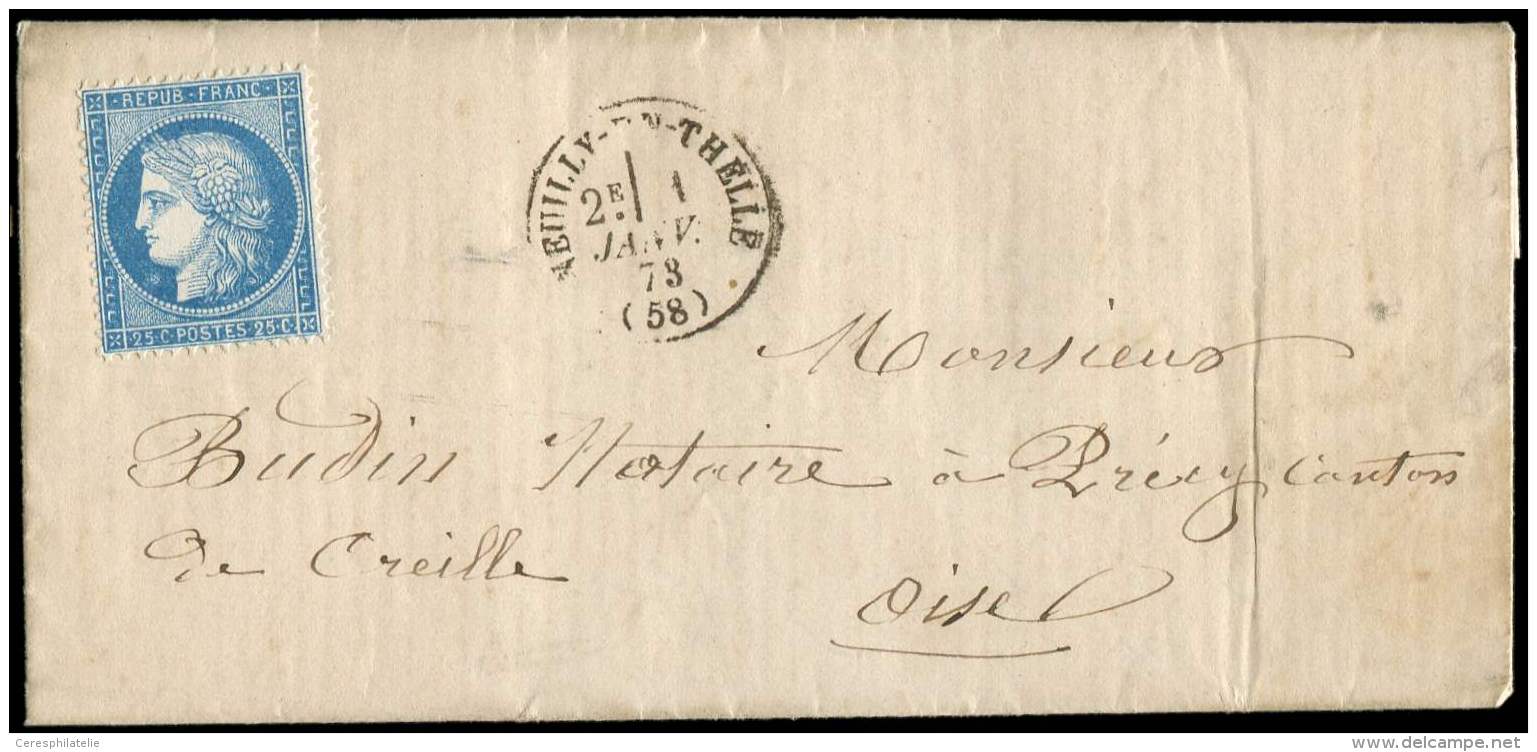 REPUB·FRANC·
25·C·POSTES·25·C·
NEUILLY-EN-THELLE
2E 1
JANV.
73
(58)
Monsieur
Budin Notaire à Précy Canton
de Creille
Oise
Ceresphilatelie
www.delcampe.net